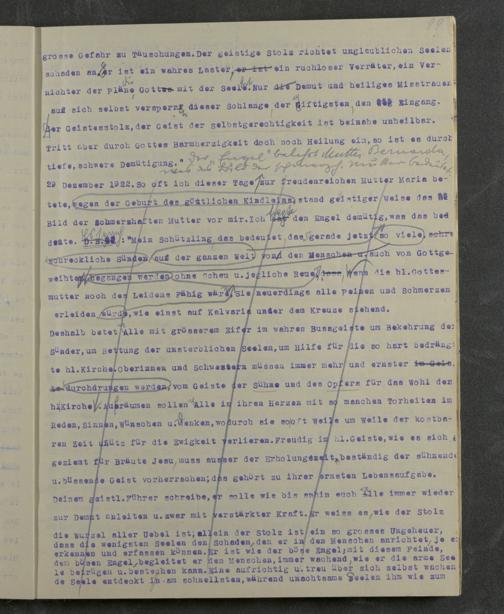 grosse Gefahr zu Täuschungen.Der geistige Stolz richtet unglaublichen Seelen
schaden an, er ist ein wahres Laster, er ist ein ruchloser Verräter, ein Ver-
nichter der Pläne Gottes mit der Seele. Nur die Demut und heiliges Misstrauen
auf sich selbst versperrt dieser Schlange der giftigsten den Eingang.
Der Geistesstolz, der Geist der Selbstgerechtigkeit ist beinahe unheilbar.
Tritt aber durch Gottes Barmherzigkeit doch noch Heilung ein, so ist es durch
tiefe, schwere Demütigung."
29 Dezember 1922. So oft ich diese Tage zur freudenreichen Mutter Maria be-
tete, wegen der Geburt des göttlichen Kindleins, stand geistiger Weise das
Bild der schmerzhaften Mutter vor mir. Ich den Engel demütig, was das bed
deute. "Mein Schützling das bedeutet, dass gerade jetzt so viele, schre
schreckliche Sünden auf der ganzen Welt von den Menschen u. auch von Gottge-
weihten begangen werden ohne Scheu u. jegliche Reue. Wenn die hl. Gottes-
mutter noch des Leidens fähig wäre, Sie neuerdings alle Peinen und Schmerzen
erleiden würde, wie einst auf Kalvaria under dem Kreuze stehend.
Deshalb betet Alle mit grösserem Eifer im wahren Bussgeiste um Bekehrung der
Sünder, um Rettung der unsterblichen Seelen, um Hilfe für die so hart bedräng
te hl. Kirche. Oberinnen und Schwestern müssen immer mehr und ernster
durchdrungen werden, vom Geiste der Sühne und des Opfers für das Wohl der
hl. Kirche. Aufräumen sollen Alle in ihren Herzen mit so manchen Torheiten im
Reden, Sinnen, Wünschen u. Denken, wodurch sie so oft Weile um Weile der kostba-
ren Zeit unütz für die Ewigkeit verlieren. Freudig im hl. Geiste, wie es sich
geziemt für Bräute Jesu, muss ausser der Erholungszeit, beständig der sühnende
u. büssende Geist vorherrschen; das gehört zu ihrer ernsten Lebensaufgabe.
Deinem geistl. Führer schreibe, er solle wie bis anhin euch Alle immer wieder
zur Demut anleiten u. zwar mit verstärkter Kraft. Er weiss es, wie der Stolz
die Wurzel aller Uebel ist; allein der Stolz ist ein so grosses Ungeheuer,
dass die wenigsten Seelen den Schaden, den er in den Menschen anrichtet, je
erkennen und erfassen können. Er ist wie der böse Engel; mit diesem Feinde,
dem bösen Engel, begleitet er den Menschen, immer wachend, wie er die arme See
le betrügen u. bestehen kann. Eine aufrichtig u. treu über sich selbst wachen
de Seele entdeckt in am schnellsten, während unachtsame Seelen ihm wie zum